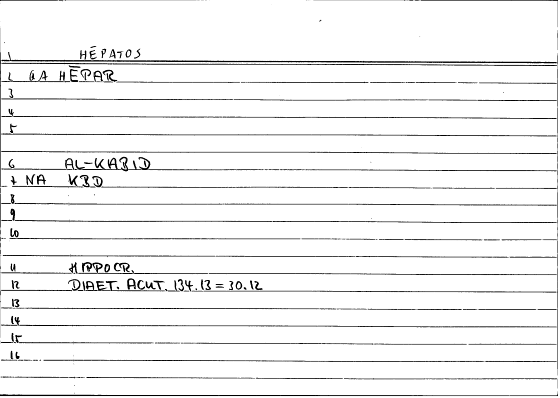 1 HĒPATOS
2 GA HĒPAR
3
4
5
6 AL-KABID
7 NA KBD
8
9
10
11 HIPPOCR.
12 DIAET. ACUT. 134.13 = 30.12
13
14
15
16